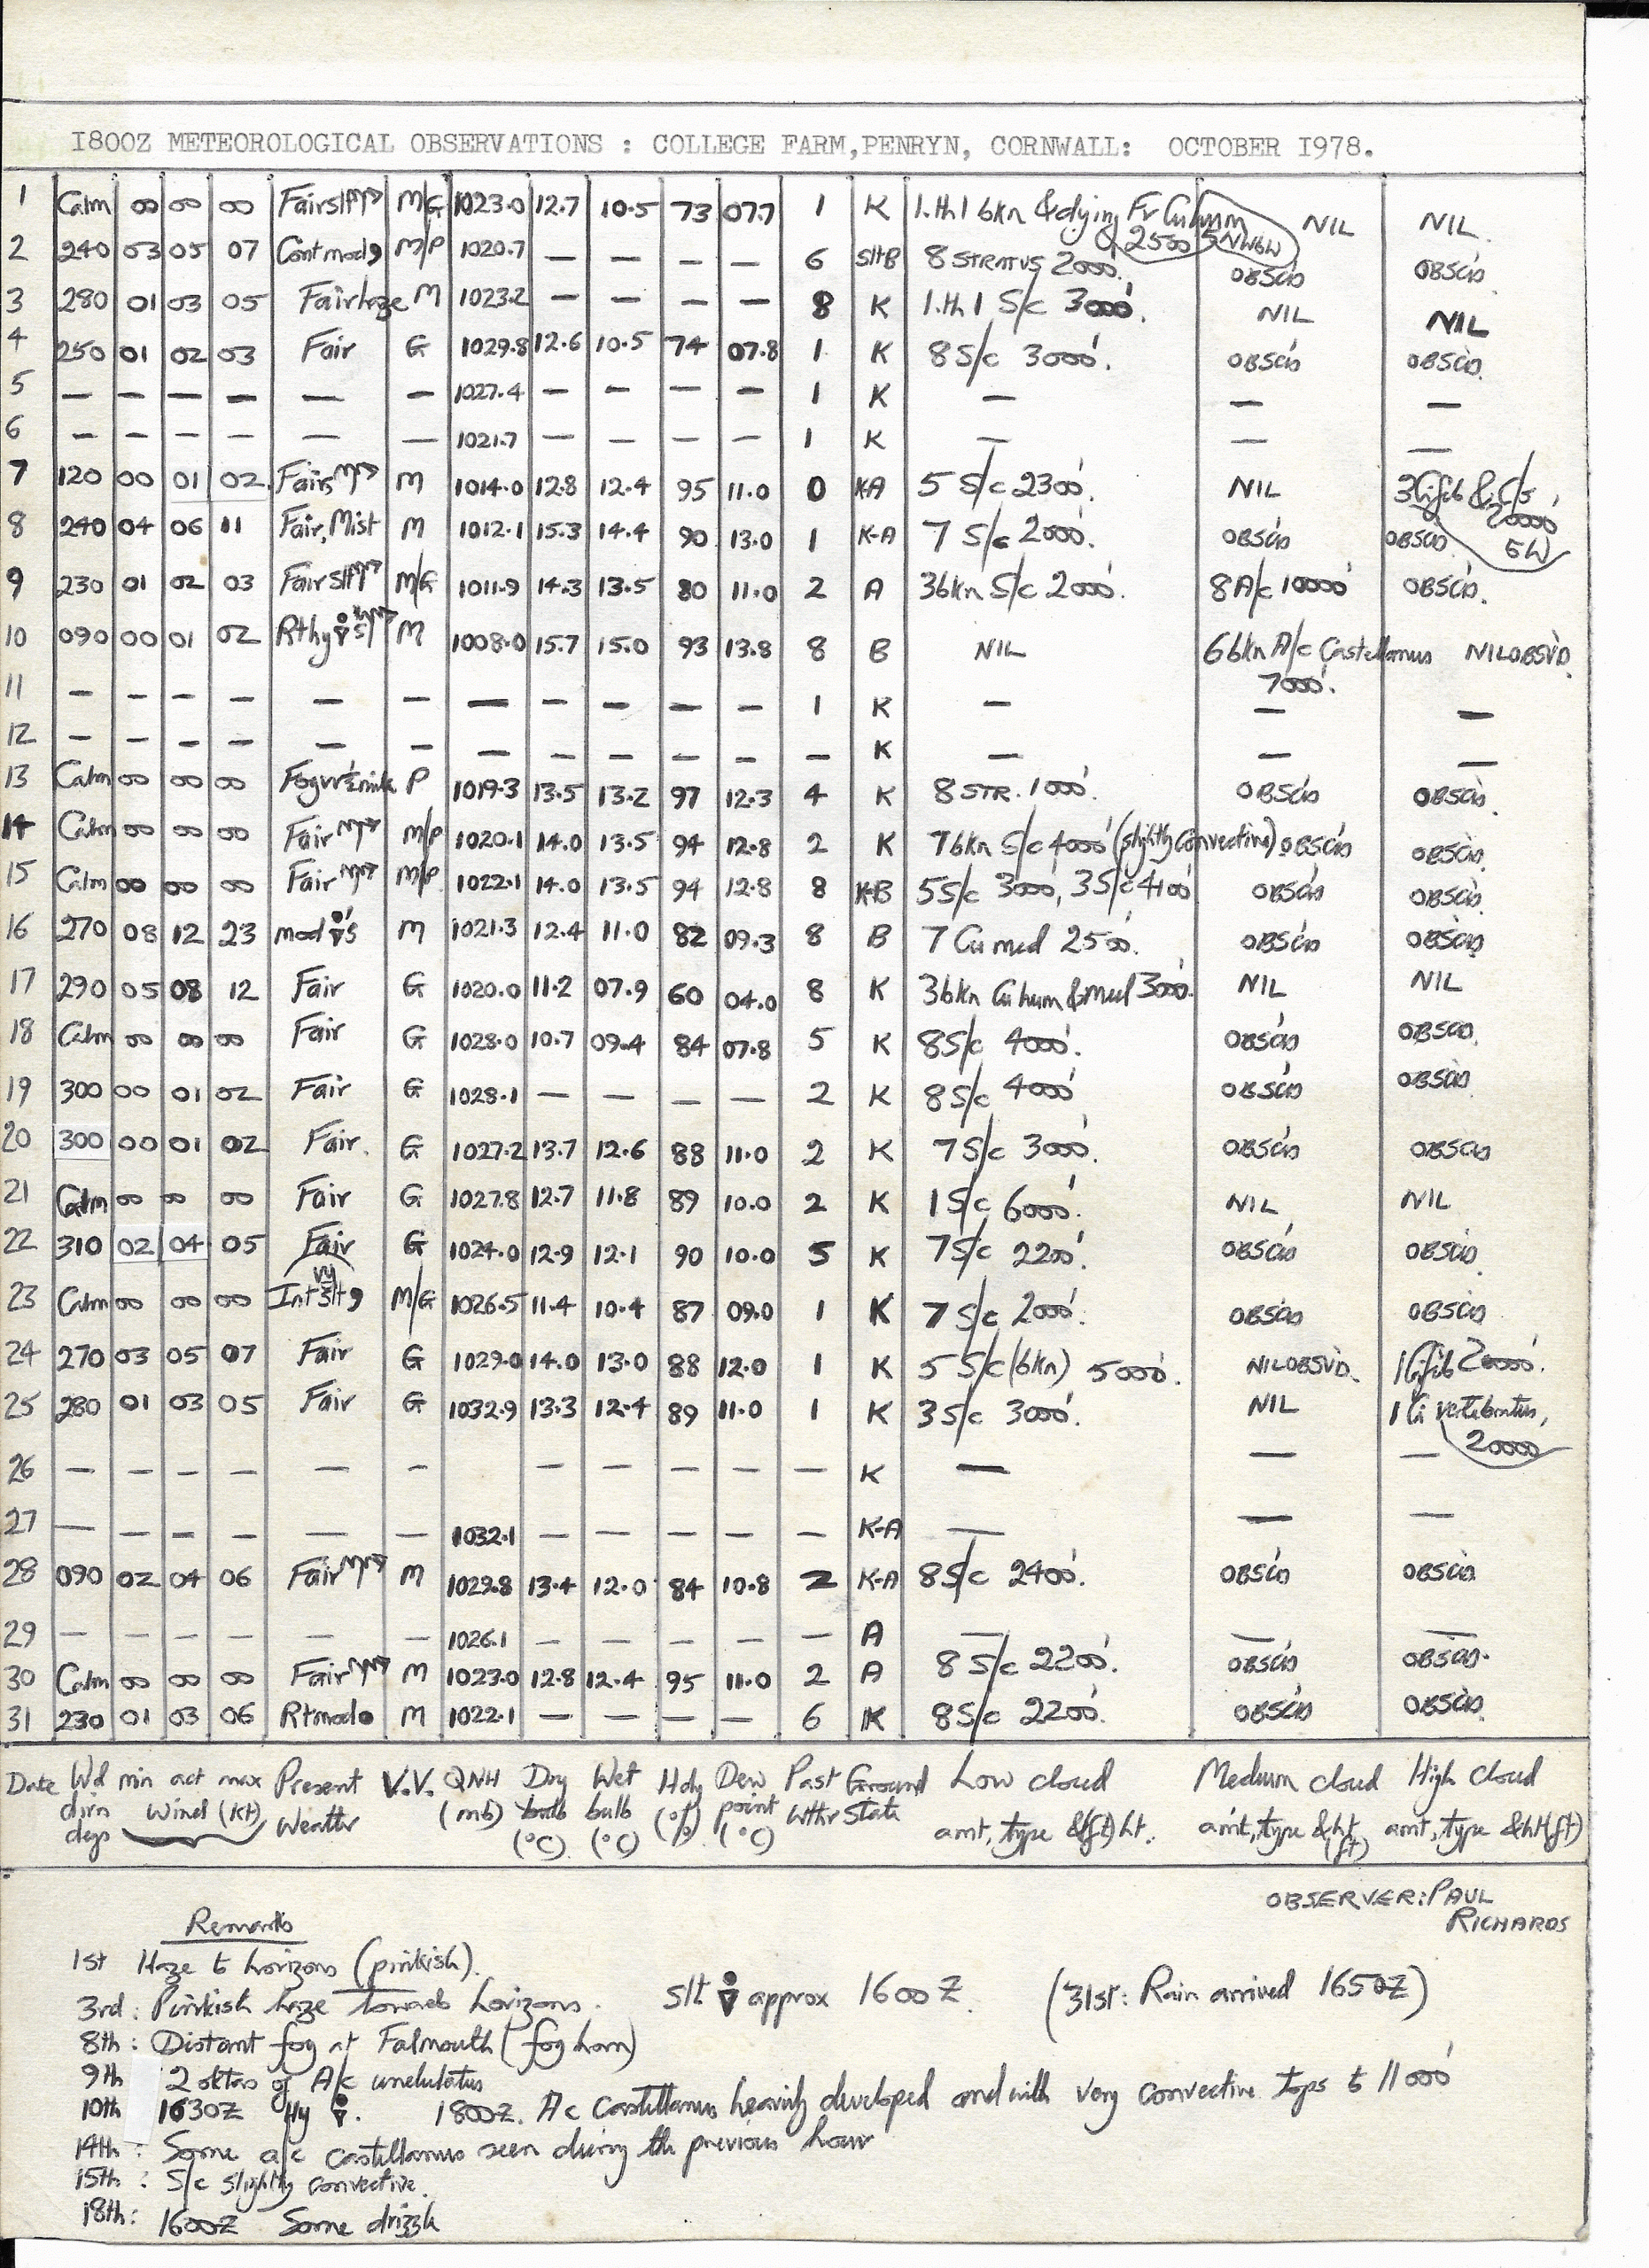 1800Z METEOROLOGICAL OBSERVATIONS : COLLEGE FARM,PENRYN, CORNWALL: OCTOBER 1978.
1 Calm 00 00 00 Fair slt M/G 1023.0 12.7 10.5 73 07.7 1 K 1.th 1 6kn & dying Fr Cu hum 2500 NIL NIL.
2 240 03 05 07 Cont mod , M/P 1020.7 — — — — 6 slt B 8 STRATUS 2000'. OBSC'D OBSC'D.
3 280 01 03 05 Fair haze M 1023.2 — — — — 8 K 1.th 1 S/c 3000'. NIL NIL
4 250 01 02 03 Fair G 1029.8 12.6 10.5 74 07.8 1 K 8 S/c 3000'. OBSC'D OBSC'D.
5 — — — — — — 1027.4 — — — — 1 K — — —
6 — — — — — — 1021.7 — — — — 1 K — — —
7 120 00 01 02 Fair M 1014.0 12.8 12.4 95 11.0 0 K-A 5 S/c 2300'. NIL 3 Ci fib & C/s 20000'
8 240 04 06 11 Fair, Mist M 1012.1 15.3 14.4 90 13.0 1 K-A 7 S/c 2000'. OBSC'D OBSC'D
9 230 01 02 03 Fair slt M/G 1011.9 14.3 13.5 80 11.0 2 A 3 6kn S/c 2000'. 8 A/c 10000' OBSC'D.
10 090 00 01 02 Rthy M 1008.0 15.7 15.0 93 13.8 8 B NIL 6 6kn A/c Castellanus 7000'. NIL OBSV'D.
11 — — — — — — — — — — — 1 K — — —
12 — — — — — — — — — — — — K — — —
13 Calm 00 00 00 Fog P 1019.3 13.5 13.2 97 12.3 4 K 8 STR. 1000'. OBSC'D OBSC'D.
14 Calm 00 00 00 Fair M/P 1020.1 14.0 13.5 94 12.8 2 K 7 6kn S/c 4000' (slightly convective) OBSC'D OBSC'D.
15 Calm 00 00 00 Fair M/P 1022.1 14.0 13.5 94 12.8 8 K-B 5 S/c 3000', 3 S/c 4100' OBSC'D OBSC'D.
16 270 08 12 23 mod M 1021.3 12.4 11.0 82 09.3 8 B 7 Cu med 2500'. OBSC'D OBSC'D
17 290 05 08 12 Fair G 1020.0 11.2 07.9 60 04.0 8 K 3 6kn Cu hum & med 3000'. NIL NIL
18 Calm 00 00 00 Fair G 1028.0 10.7 09.4 84 07.8 5 K 8 S/c 4000'. OBSC'D OBSC'D.
19 300 00 01 02 Fair G 1028.1 — — — — 2 K 8 S/c 4000' OBSC'D OBSC'D
20 300 00 01 02 Fair. G 1027.2 13.7 12.6 88 11.0 2 K 7 S/c 3000'. OBSC'D OBSC'D
21 Calm 00 00 00 Fair G 1027.8 12.7 11.8 89 10.0 2 K 1 S/c 6000'. NIL NIL
22 310 02 04 05 Fair G 1024.0 12.9 12.1 90 10.0 5 K 7 S/c 2200'. OBSC'D OBSC'D.
23 Calm 00 00 00 Int vy slt , M/G 1026.5 11.4 10.4 87 09.0 1 K 7 S/c 2000'. OBSC'D OBSC'D
24 270 03 05 07 Fair G 1029.0 14.0 13.0 88 12.0 1 K 5 S/c (6kn) 5000'. NIL OBSV'D. 1 Ci fib 20000'.
25 280 01 03 05 Fair G 1032.9 13.3 12.4 89 11.0 1 K 3 S/c 3000'. NIL 1 Ci vertebratus, 20000
26 — — — — — — — — — — — K — — —
27 — — — — — — 1032.1 — — — — — K-A — — —
28 090 02 04 06 Fair M 1029.8 13.4 12.0 84 10.8 2 K-A 8 S/c 2400'. OBSC'D OBSC'D
29 — — — — — — 1026.1 — — — — — A — — —
30 Calm 00 00 00 Fair M 1023.0 12.8 12.4 95 11.0 2 A 8 S/c 2200'. OBSC'D OBSC'D.
31 230 01 03 06 Rtmod M 1022.1 — — — — 6 K 8 S/c 2200'. OBSC'D OBSC'D.
Date Wd min act max Present V.V. QNH Dry Wet Hdy Dew Past Ground Low cloud Medium cloud High cloud
dirn wind (kt) weather (mb) bulb bulb (%) point wthr state amt, type &(ft) ht. amt, type & ht (ft) amt, type & ht (ft)
degs (°C) (°C) (°C)
OBSERVER: PAUL
RICHARDS
Remarks
1st Haze to horizons (pinkish).
3rd: Pinkish haze towards horizons. slt approx 1600Z. (31st: Rain arrived 1650Z)
8th: Distant fog at Falmouth (fog horn)
9th 2 oktas of A/c undulatus
10th 1630Z Hy . 1800Z. Ac Castellanus heavily developed and with very convective tops to 11000'
14th: Some a/c castellanus seen during the previous hour
15th: S/c slightly convective.
18th: 1600Z Some drizzle